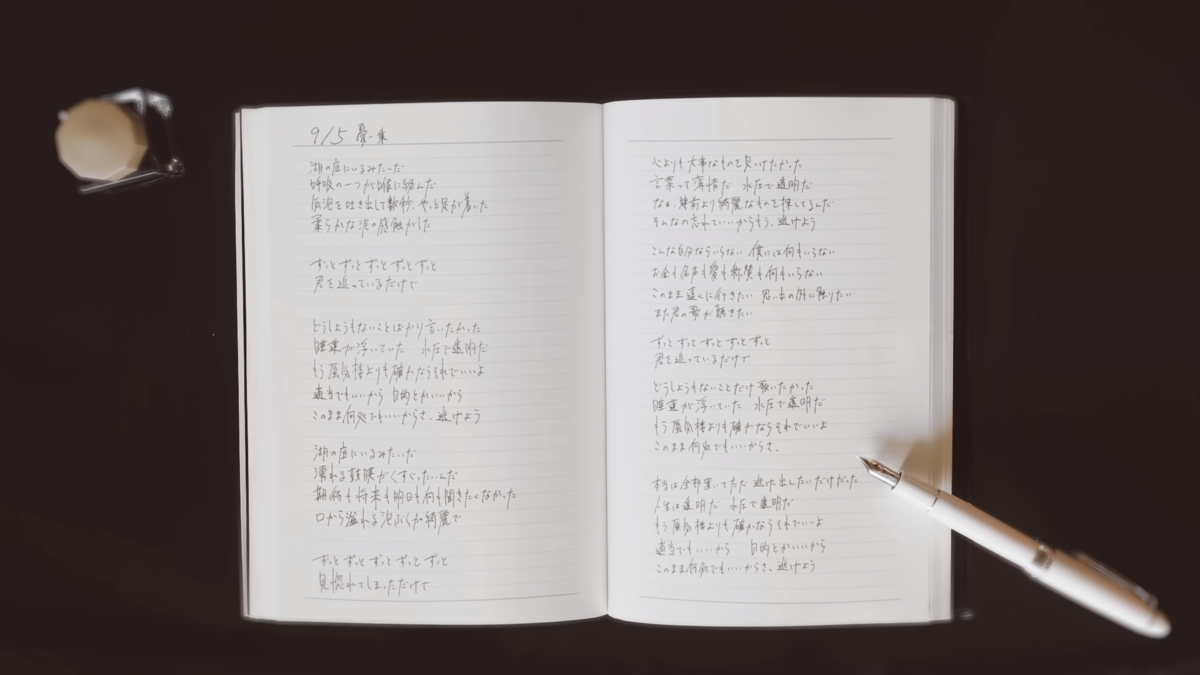 9/5 憂一乗
湖の底にいるみたいだ
呼吸の一つが喉に絡んだ
気泡を吐き出して数秒、やっと足が着いた
柔らかな泥の感触がした
ずっとずっとずっとずっとずっと
君を追っているだけで
どうしようもないことばかり言いたかった
睡蓮が浮いていた 水圧で透明だ
もう蜃気楼よりも確かならそれでいいよ
適当でもいいから 目的とかいいから
このまま何処でもいいからさ、逃げよう
湖の底にいるみたいだ
濡れる鼓膜がくすぐったいんだ
期待も将来も明日も何も聞きたくなかった
口から溢れる泡ぶくが綺麗で
ずっとずっとずっとずっとずっと
見惚れてしまっただけで
心よりも大事なものを見つけたかった
言葉って薄情だ 水圧で透明だ
なぁ、建前より綺麗なものを探してるんだ
そんなの忘れていいからもう、逃げよう
こんな自分ならいらない 僕には何もいらない
お金も名声も愛も称賛も何もいらない
このまま遠くに行きたい 思い出の外に触りたい
また君の歌が聴きたい
ずっとずっとずっとずっとずっと
君を追っているだけで
どうしようもないことだけ歌いたかった
睡蓮が浮いていた 水圧で透明だ
もう蜃気楼よりも確かならそれでいいよ
このまま何処でもいいからさ、
本当は全部置いてただ逃げ出したいだけだった
人生は透明だ 水圧で透明だ
もう蜃気楼よりも確かならそれでいいよ
適当でもいいから 目的とかいいから
このまま何処でもいいからさ、逃げよう